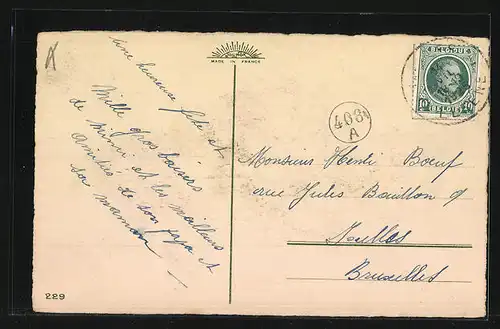 une heureuse fête et
Mille gros baisers
de mimi et les meilleurs
amitiés de son papa et
sa maman
MADE IN FRANCE
BELGIQUE
10 10
BELGIE
408
A
Monsieur Henri Bœuf
rue Jules Bouillon 9
Ixelles
Bruxelles
229